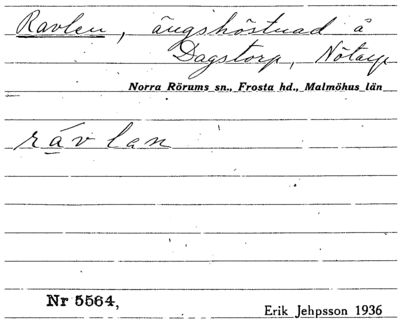 Ravlen, ängshöstnad å
Dagstorp, Nötarp
Norra Rörums sn., Frosta hd., Malmöhus län
rävlan
Nr 5564,
Erik Jehpsson 1936